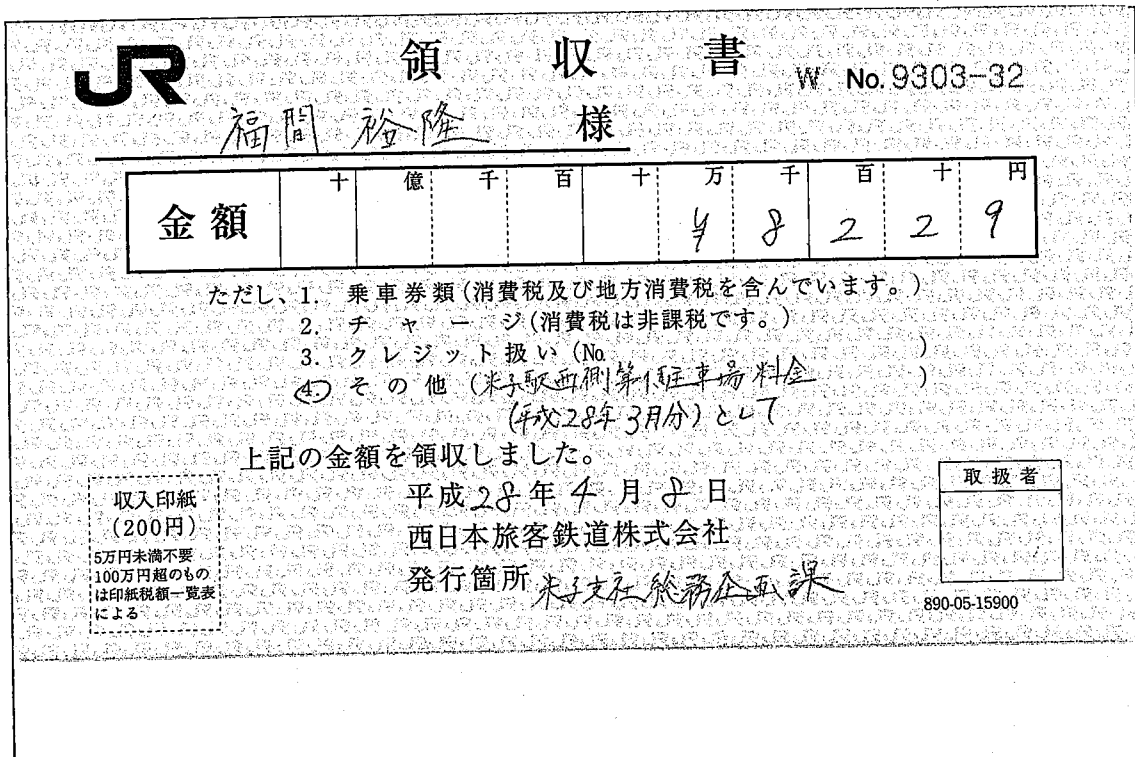 JR 領収書 W No.9303-32
福間 裕隆 様
十 億 千 百 十 万 千 百 十 円
金額 ¥ 8 2 2 9
ただし、1. 乗車券類(消費税及び地方消費税を含んでいます。)
2. チャージ(消費税は非課税です。)
3. クレジット扱い(No. )
4. その他(米子駅西側第1駐車場料金 )
(平成28年3月分)として
上記の金額を領収しました。
平成28年4月8日
西日本旅客鉄道株式会社
発行箇所 米子支社総務企画課
収入印紙
(200円)
5万円未満不要
100万円超のもの
は印紙税額一覧表
による
取扱者
890-05-15900